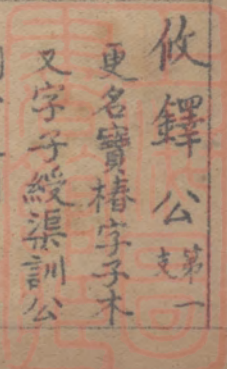 攸鐸公第一支
更名寶椿字子木
又字子綬渠訓公